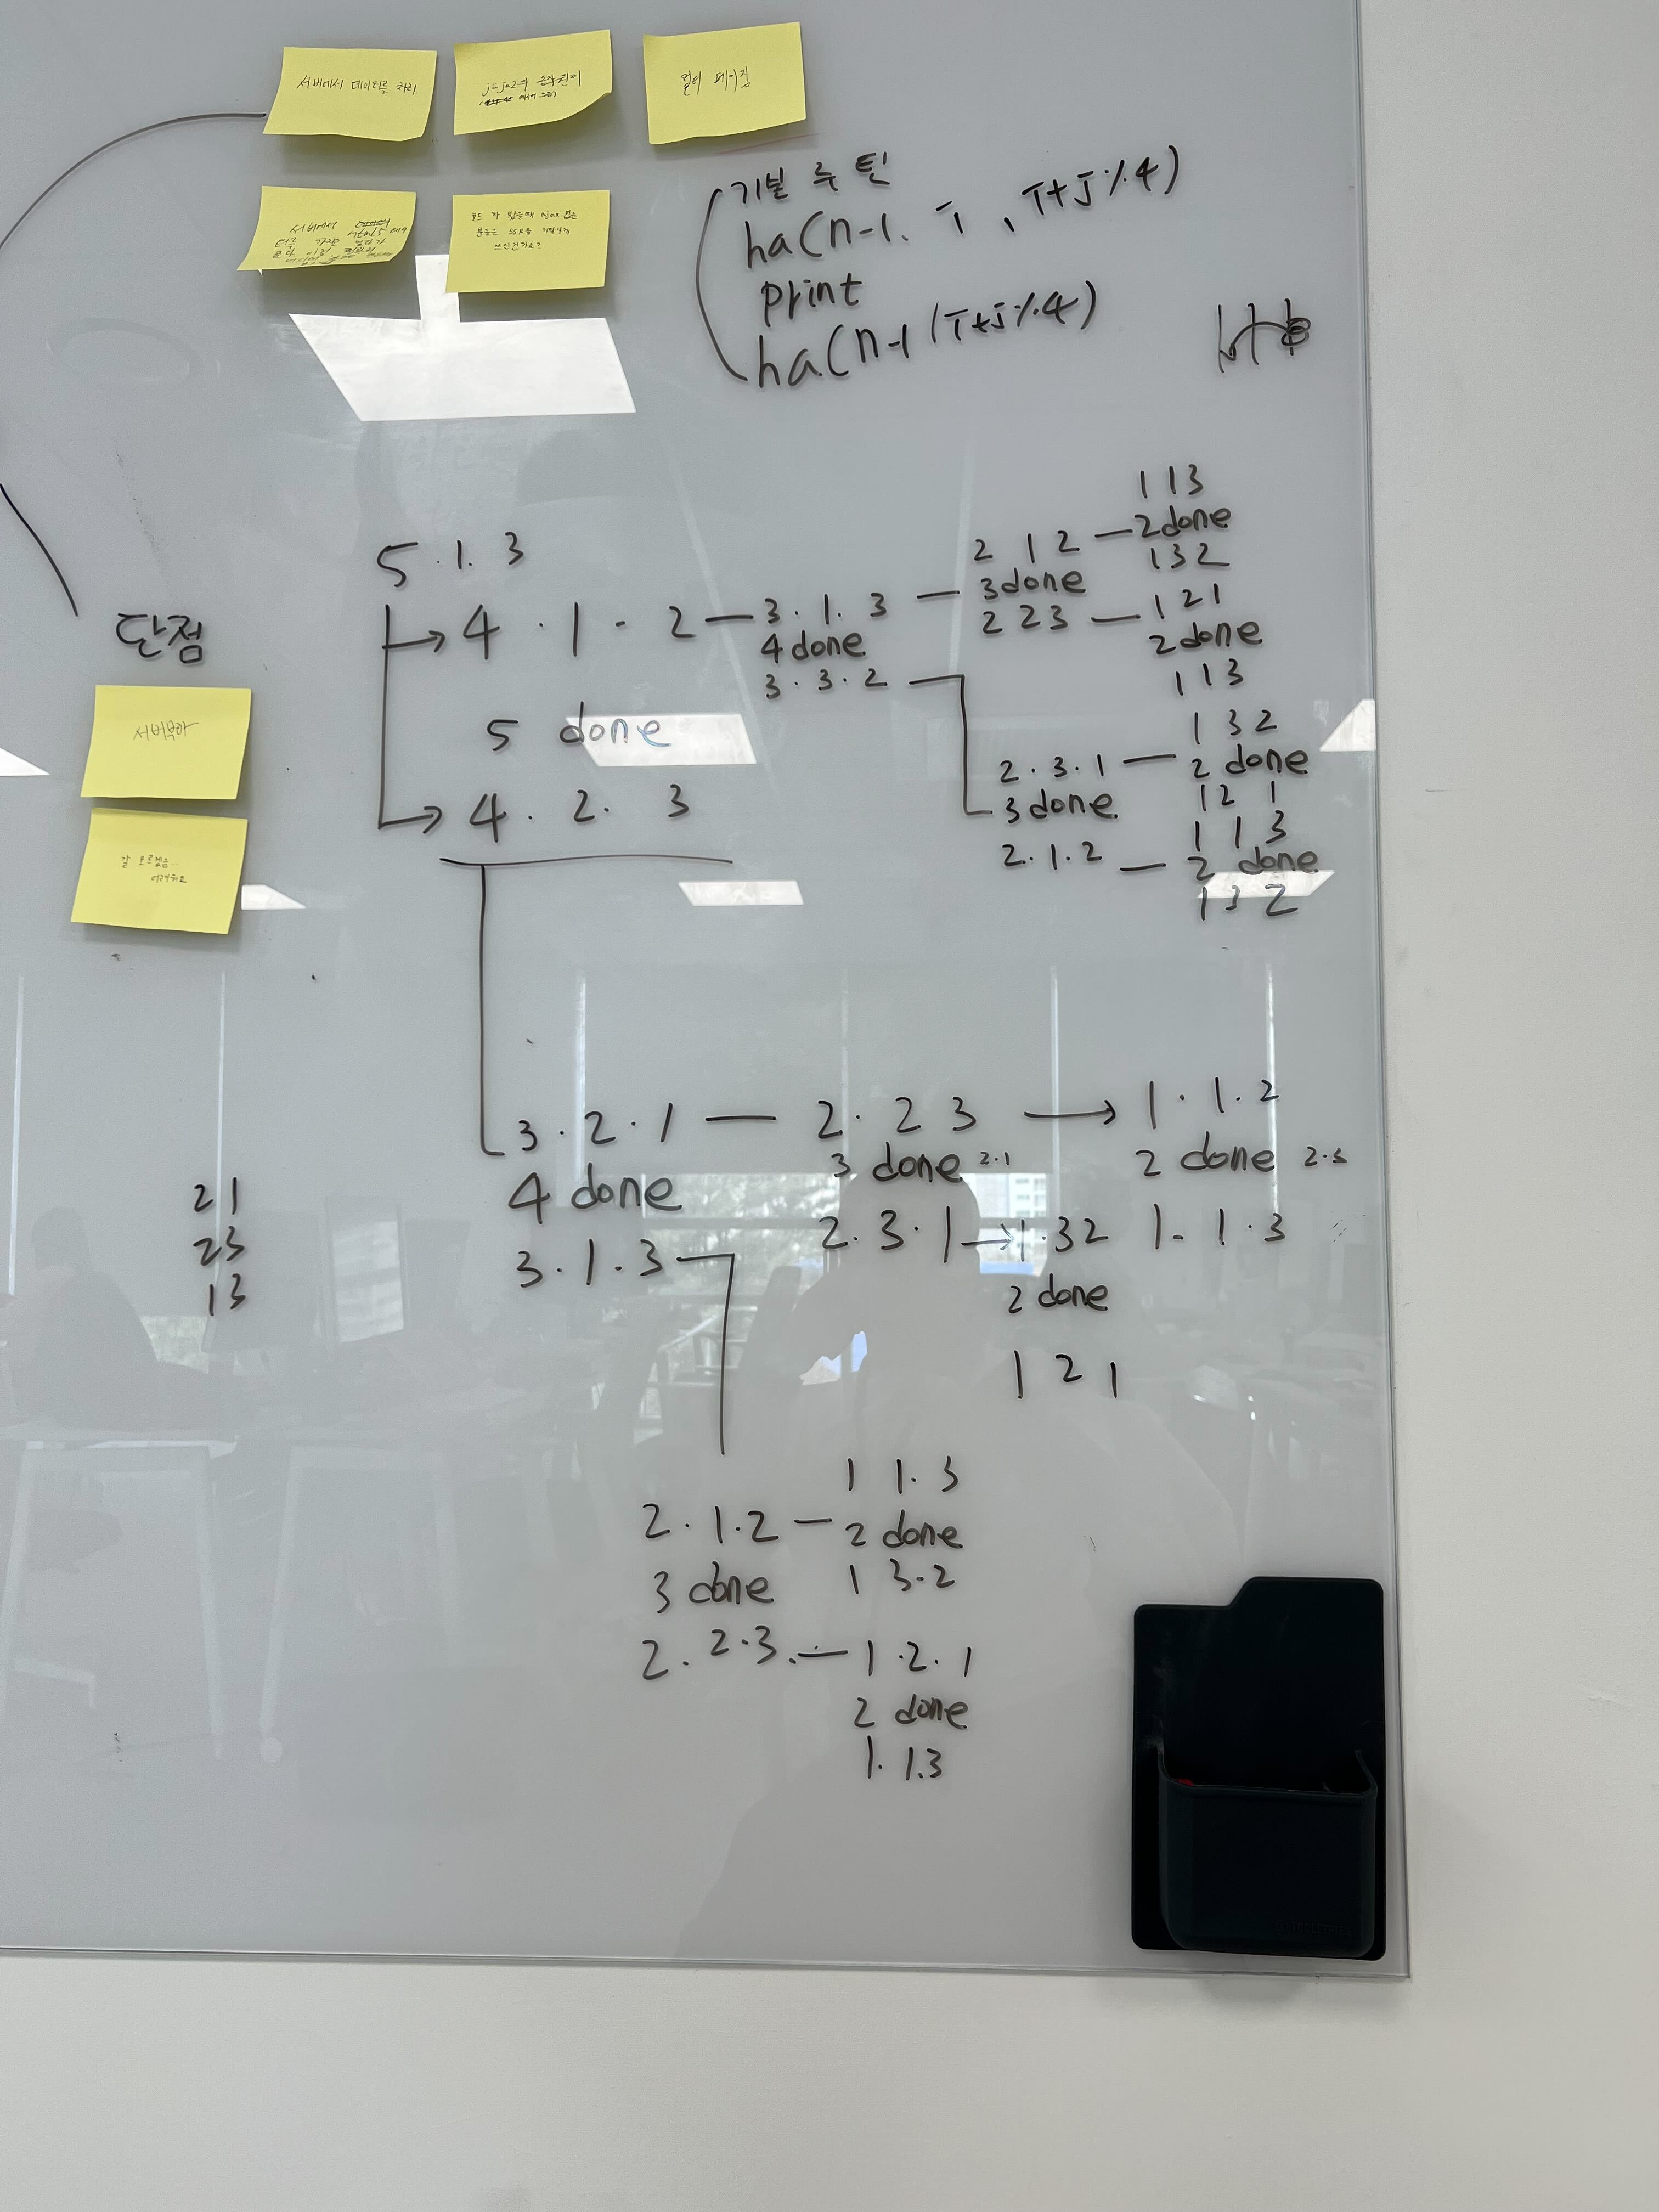 서버에서 데이터를 처리
jinja2
멀티 페이징
서버에서
HTML5
코드 가 짧을때 ajax 없는
부분은 SSR을
쓰인건가요?
기본 루틴
ha(n-1. i , i+j%4)
print
ha(n-1 (i+j%4)
단점
서버부하
잘 모르겠음..
어려워요
5.1.3
4.1.2
5 done
4.2.3
3.1.3
4 done
3.3.2
2 1 2
3 done
2 2 3
1 1 3
2 done
1 3 2
1 2 1
2 done
1 1 3
2.3.1
3 done
2.1.2
1 3 2
2 done
1 2 1
1 1 3
2 done
1 3 2
3.2.1
4 done
3.1.3
2.2 3
3 done 2.1
2.3.1
1.1.2
2 done
1.1.3
1.32
2 done
1 2 1
2.1.2
3 done
2.2.3.
1 1.3
2 done
1 3.2
1.2.1
2 done
1.1.3
21
23
13